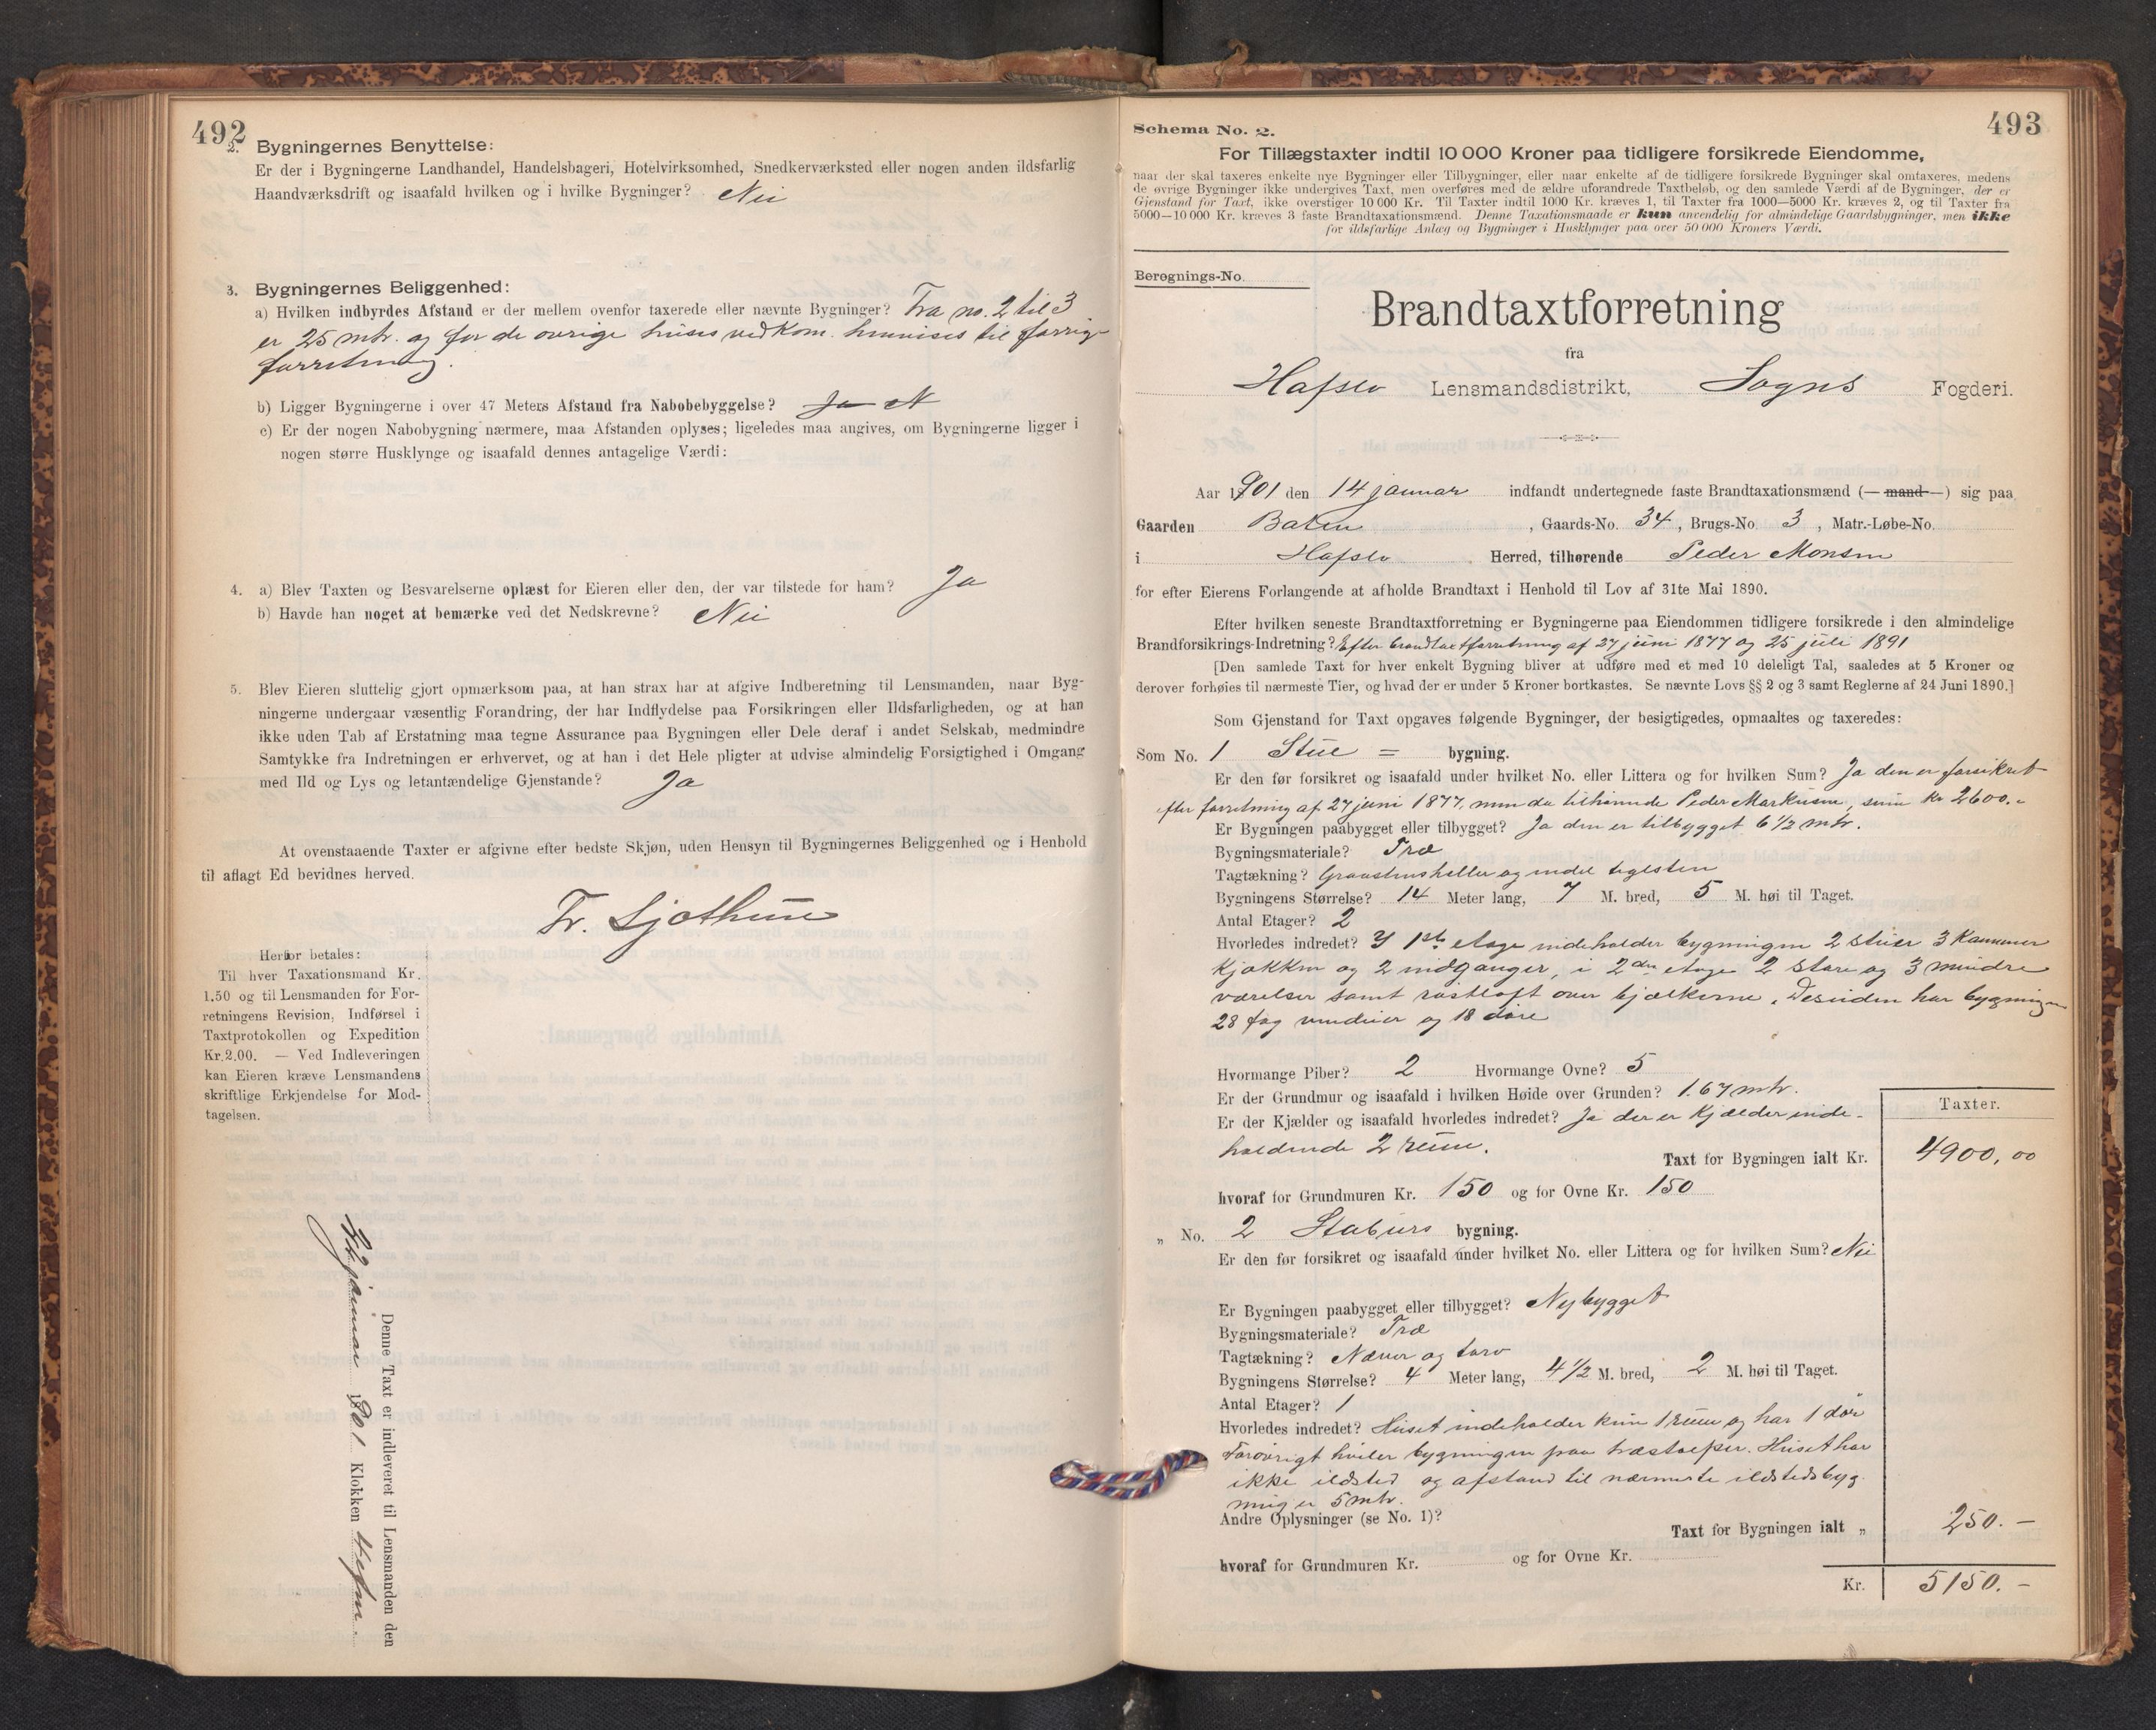 492
2. Bygningernes Benyttelse:
Er der i Bygningerne Landhandel, Handelsbageri, Hotelvirksomhed, Snedkerværksted eller nogen anden ildsfarlig
Haandværksdrift og isaafald hvilken og i hvilke Bygninger? Nei
3. Bygningernes Beliggenhed:
a) Hvilken indbyrdes Afstand er der mellem ovenfor taxerede eller nævnte Bygninger? Fra no. 2 til 3
er 25 mtr. og for de øvrige huses vedkom. henvises til forrige
forretning.
b) Ligger Bygningerne i over 47 Meters Afstand fra Nabobebyggelse? Ja
c) Er der nogen Nabobygning nærmere, maa Afstanden oplyses; ligeledes maa angives, om Bygningerne ligger i
nogen større Husklynge og isaafald dennes antagelige Værdi:
4. a) Blev Taxten og Besvarelserne oplæst for Eieren eller den, der var tilstede for ham? Ja
b) Havde han noget at bemærke ved det Nedskrevne? Nei
5. Blev Eieren sluttelig gjort opmærksom paa, at han strax har at afgive Indberetning til Lensmanden, naar Byg-
ningerne undergaar væsentlig Forandring, der har Indflydelse paa Forsikringen eller Ildsfarligheden, og at han
ikke uden Tab af Erstatning maa tegne Assurance paa Bygningen eller Dele deraf i andet Selskab, medmindre
Samtykke fra Indretningen er erhvervet, og at han i det Hele pligter at udvise almindelig Forsigtighed i Omgang
med Ild og Lys og letantændelige Gjenstande? Ja
At ovenstaaende Taxter er afgivne efter bedste Skjøn, uden Hensyn til Bygningernes Beliggenhed og i Henhold
til aflagt Ed bevidnes herved.
Fr. Sjøthun
Herfor betales:
Til hver Taxationsmand Kr.
1.50 og til Lensmanden for For-
retningens Revision, Indførsel i
Taxtprotokollen og Expedition
Kr. 2.00. — Ved Indleveringen
kan Eieren kræve Lensmandens
skriftlige Erkjendelse for Mod-
tagelsen.
Denne Taxt er indleveret til Lensmanden den
januar 1901 Klokken 4 efm.
493
Schema No. 2.
For Tillægstaxter indtil 10 000 Kroner paa tidligere forsikrede Eiendomme,
naar der skal taxeres enkelte nye Bygninger eller Tilbygninger, eller naar enkelte af de tidligere forsikrede Bygninger skal omtaxeres, medens
de øvrige Bygninger ikke undergives Taxt, men overføres med de ældre uforandrede Taxtbeløb, og den samlede Værdi af de Bygninger, der er
Gjenstand for Taxt, ikke overstiger 10 000 Kr. Til Taxter indtil 1000 Kr. kræves 1, til Taxter fra 1000—5000 Kr. kræves 2, og til Taxter fra
5000—10 000 Kr. kræves 3 faste Brandtaxationsmænd. Denne Taxationsmaade er kun anvendelig for almindelige Gaardsbygninger, men ikke
for ildsfarlige Anlæg og Bygninger i Husklynger paa over 50 000 Kroners Værdi.
Beregnings-No.
Brandtaxtforretning
fra
Hafslo Lensmandsdistrikt, Sogns Fogderi.
Aar 1901 den 14 januar indfandt undertegnede faste Brandtaxationsmænd (— mand —) sig paa
Gaarden Baten, Gaards-No. 34, Brugs-No. 3, Matr.-Løbe-No.
i Hafslo Herred, tilhørende Peder Monsen
for efter Eierens Forlangende at afholde Brandtaxt i Henhold til Lov af 31te Mai 1890.
Efter hvilken seneste Brandtaxtforretning er Bygningerne paa Eiendommen tidligere forsikrede i den almindelige
Brandforsikrings-Indretning? Efter brandtaxtforretning af 27 juni 1877 og 25 juli 1891
[Den samlede Taxt for hver enkelt Bygning bliver at udføre med et med 10 deleligt Tal, saaledes at 5 Kroner og
derover forhøies til nærmeste Tier, og hvad der er under 5 Kroner bortkastes. Se nævnte Lovs §§ 2 og 3 samt Reglerne af 24 Juni 1890.]
Som Gjenstand for Taxt opgaves følgende Bygninger, der besigtigedes, opmaaltes og taxeredes:
Som No. 1 Stue = bygning.
Er den før forsikret og isaafald under hvilket No. eller Littera og for hvilken Sum? Ja den er forsikret
efter forretning af 27 juni 1877, men da tilhørende Peder Markusen, sum kr 2600.-
Er Bygningen paabygget eller tilbygget? Ja den er tilbygget 6 1/2 mtr.
Bygningsmateriale? Træ
Tagtækning? Graastensheller og endel teglsten
Bygningens Størrelse? 14 Meter lang, 7 M. bred, 5 M. høi til Taget.
Antal Etager? 2
Hvorledes indredet? I 1ste etage indeholder bygningen 2 stuer 3 Kammer
Kjøkken og 2 indgange, i 2den etage 2 store og 3 mindre
værelser samt røstloft over bjelkerne. Desuden har bygningen
28 fag vinduer og 18 døre
Hvormange Piber? 2 Hvormange Ovne? 5
Er der Grundmur og isaafald i hvilken Høide over Grunden? 1.67 mtr.
Er der Kjælder og isaafald hvorledes indredet? Ja der er Kjælder inde-
holdende 2 rum.
Taxter.
Taxt for Bygningen ialt Kr. 4900,00
hvoraf for Grundmuren Kr. 150 og for Ovne Kr. 150
„ No. 2 Staburs bygning.
Er den før forsikret og isaafald under hvilket No. eller Littera og for hvilken Sum? Nei
Er Bygningen paabygget eller tilbygget? Nybygget
Bygningsmateriale? Træ
Tagtækning? Næver og torv
Bygningens Størrelse? 4 Meter lang, 4 1/2 M. bred, 2 M. høi til Taget.
Antal Etager? 1
Hvorledes indredet? Huset indeholder kun 1 rum og har 1 dør
Forøvrigt hviler bygningen paa træstolper. Huset har
ikke ildsted og afstand til nærmeste ildstedsbyg
ning er 5 mtr.
Andre Oplysninger (se No. 1)?
Taxt for Bygningen ialt „ 250.-
hvoraf for Grundmuren Kr. og for Ovne Kr.
Kr. 5150.-